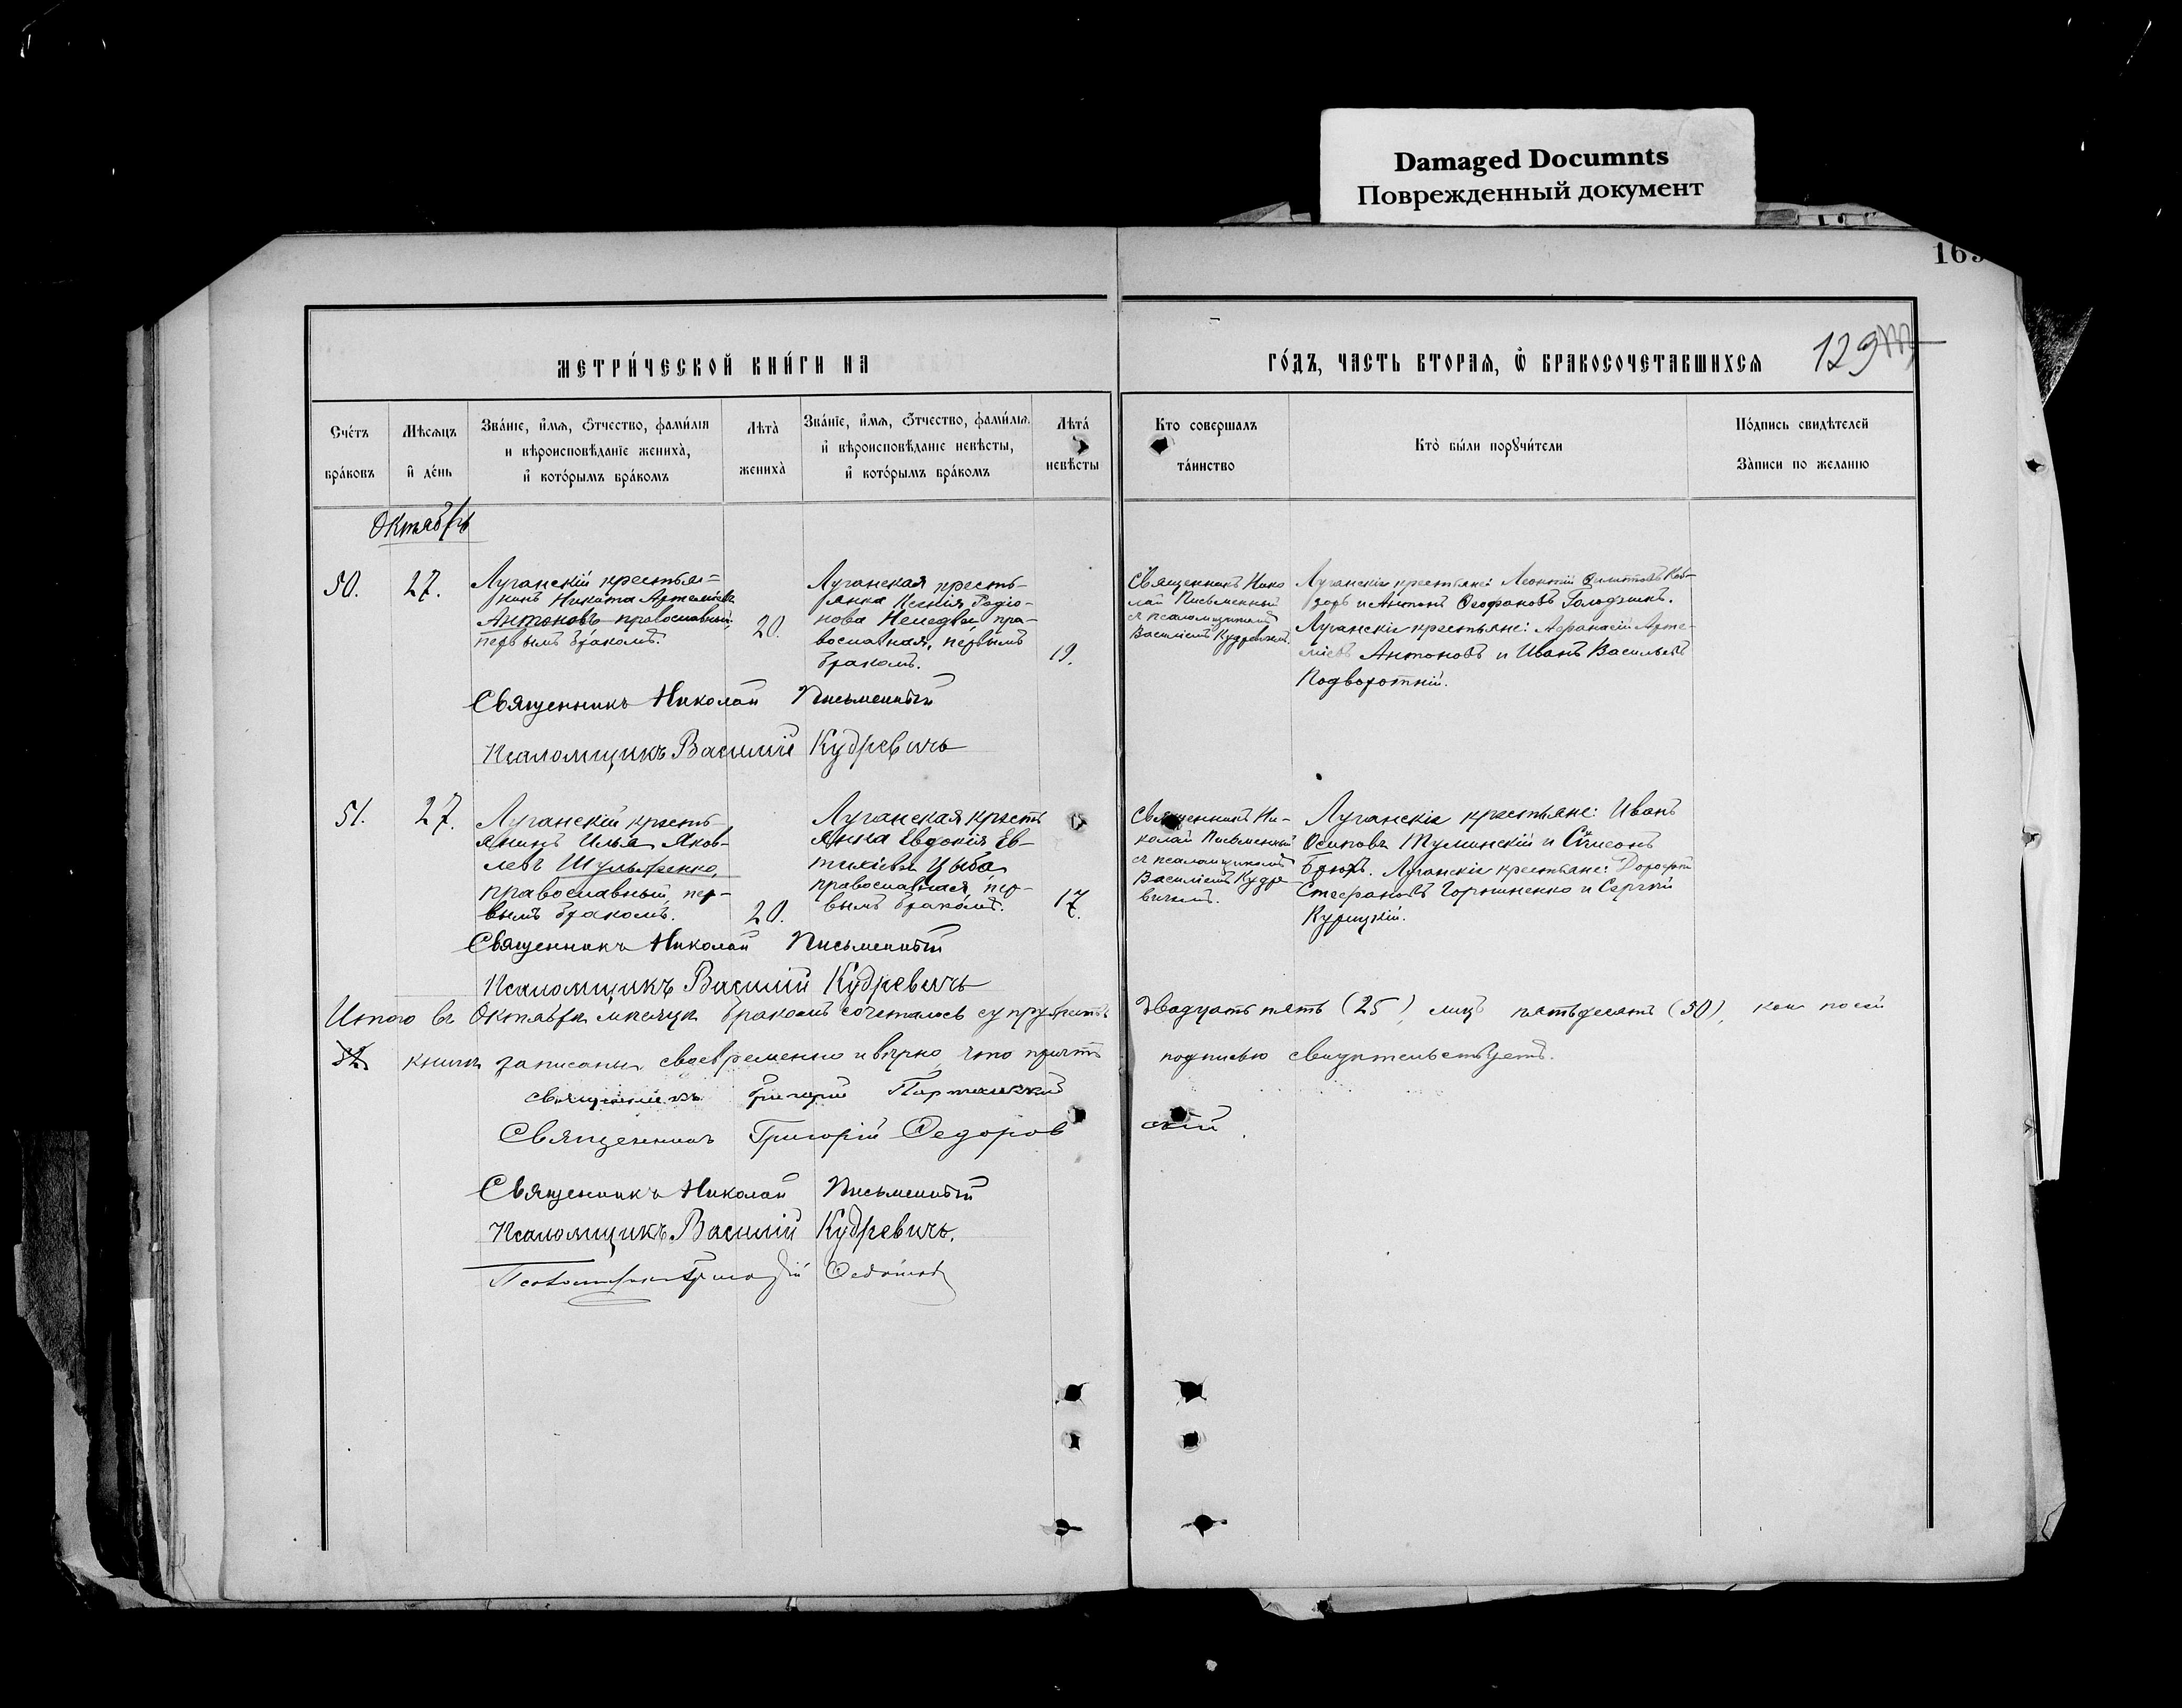 Damaged Documnts
Поврежденный документ
169
129
МЕТРИ́ЧЕСКОЙ КНИ́ГИ НА
ГО́ДЪ, ЧАСТЬ ВТОРАЯ, Ѡ҆ БРАКОСОЧЕТАВШИХСЯ
Сче́тъ бра́ковъ
Мѣ́сяцъ и҆ де́нь
Зва́нїе, и҆́мя, ѻ҆́тчество, фами́лїя и вѣроисповѣ́данїе жениха̀, и҆ кото́рымъ бра́комъ
Лѣта̀ жениха̀
Зва́нїе, и҆́мя, ѻ҆́тчество, фами́лїя, и҆ вѣроисповѣ́данїе невѣ́сты, и҆ кото́рымъ бра́комъ
Лѣта́ невѣ́сты
Кто совершалъ та́инство
Кто̀ бы́ли порꙋчи́тели
По́дпись свидѣ́телей За̀писи по желанїю
Октябрь
50.
27.
Луганскій крестья=
нинъ Никита Артеміевъ
Антоновъ православный,
первымъ бракомъ.
20.
Луганская кресть-
янка Ксенія Родіо-
нова Неледва, пра-
вославная, первымъ
бракомъ.
19.
Священникъ Нико
лай Письменный
съ псаломщикомъ
Василіемъ Кудревичемъ
Луганскіе крестьяне: Леонтій
и Антонъ Феофановъ
Луганскіе крестьяне: Афанасій Арте-
міевъ Антоновъ и Иванъ Васильевъ
Подворотній.
Священникъ Николай Письменный
Псаломщикъ Василій Кудревичъ
51.
27.
Луганскій кресть-
янинъ Илья Яков-
левъ Шульженко,
православный, пер-
вымъ бракомъ.
20.
Луганская кресть
янка Евдокія Ев-
тихіева Цыба
православная, пер-
вымъ бракомъ.
17.
Священникъ Ни-
колай Письменный
съ псаломщикомъ
Василіемъ Кудре
вичемъ.
Луганскіе крестьяне: Иванъ
Осиповъ Туминскій и Симеонъ
Луганскіе крестьяне: Дорофей
Стефановъ Горпиненко и Сергій
Курицкій.
Священникъ Николай Письменный
Псаломщикъ Василій Кудревичъ
Итого въ Октябрѣ мѣсяцѣ бракомъ сочеталось супружествъ двадцать пять (25), лицъ пятьдесятъ (50), кои по сей
книгѣ записаны своевременно и вѣрно, что причтъ подписью свидѣтельствуетъ.
Священникъ Григорій
Священникъ Григорій Федоровскій.
Священникъ Николай Письменный
Псаломщикъ Василій Кудревичъ.